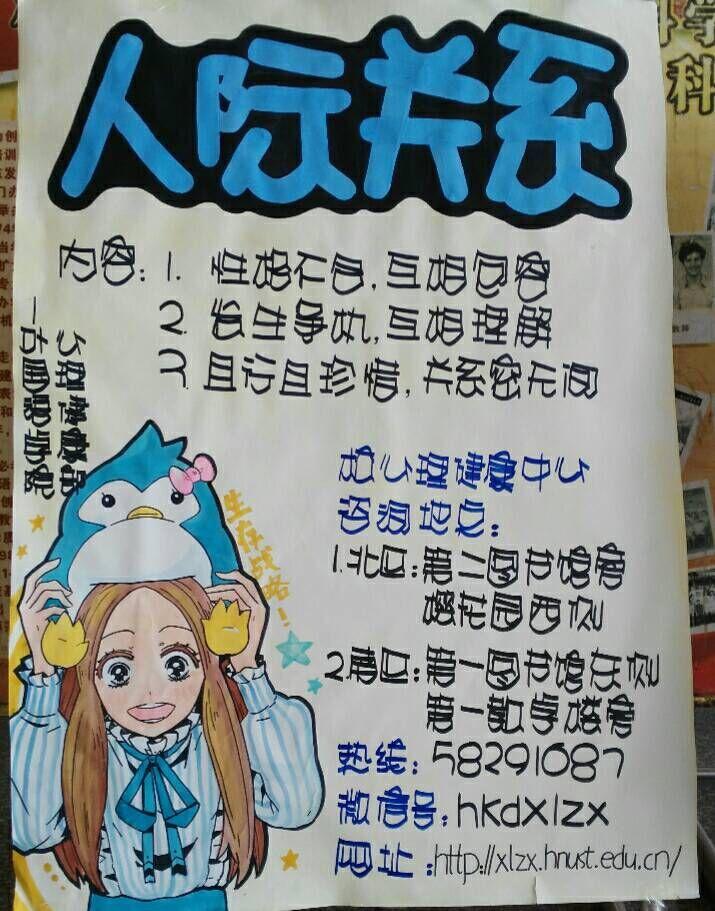 人际关系
内容：1. 性格不合，互相包容
2. 发生争执，互相理解
3. 且行且珍惜，关系密无间
心理健康部
生存战略！
校心理健康中心
咨询地点：
1.北区：第二图书馆旁
樱花园西侧
2.南区：第一图书馆东侧
第一教学楼旁
热线：58291087
微信号：hkdxlzx
网址：http://xlzx.hnust.edu.cn/
科